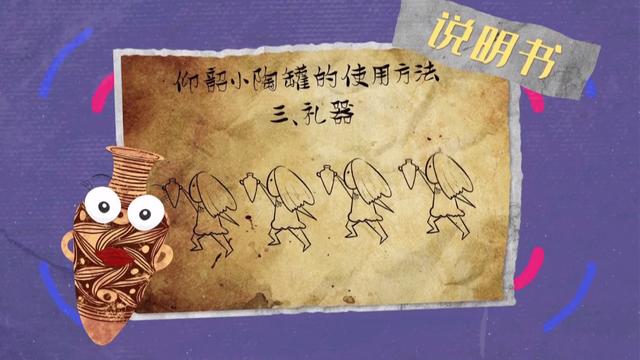 说明书
仰韶小陶罐的使用方法
三、礼器